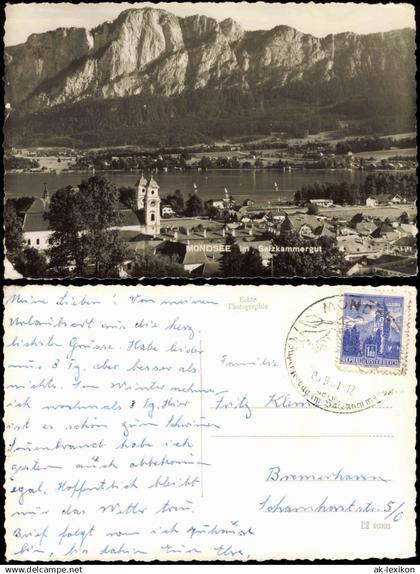 MONDSEE im Salzkammergut
Meine Lieben! Von meinem
Urlaubsort aus die herz-
lichsten Grüsse. Habe leider
nur 3 Tg. aber besser als
nichts. Im Winter nehme
ich nochmals 8 Tg. Hier
ist es schön zum Schwimmen
Sonnenbrand habe ich
gestern auch abbekommen
egal. Hoffentlich bleibt
nur das Wetter treu.
Brief folgt wenn ich zuhause
bin, bis dahin Eure Elke
Echte
Photographie
MONDSEE
im Salzkammergut
REPUBLIK ÖSTERREICH
Familie
Fritz Klem
Bremerhaven
Scharnhorststr. 5/0